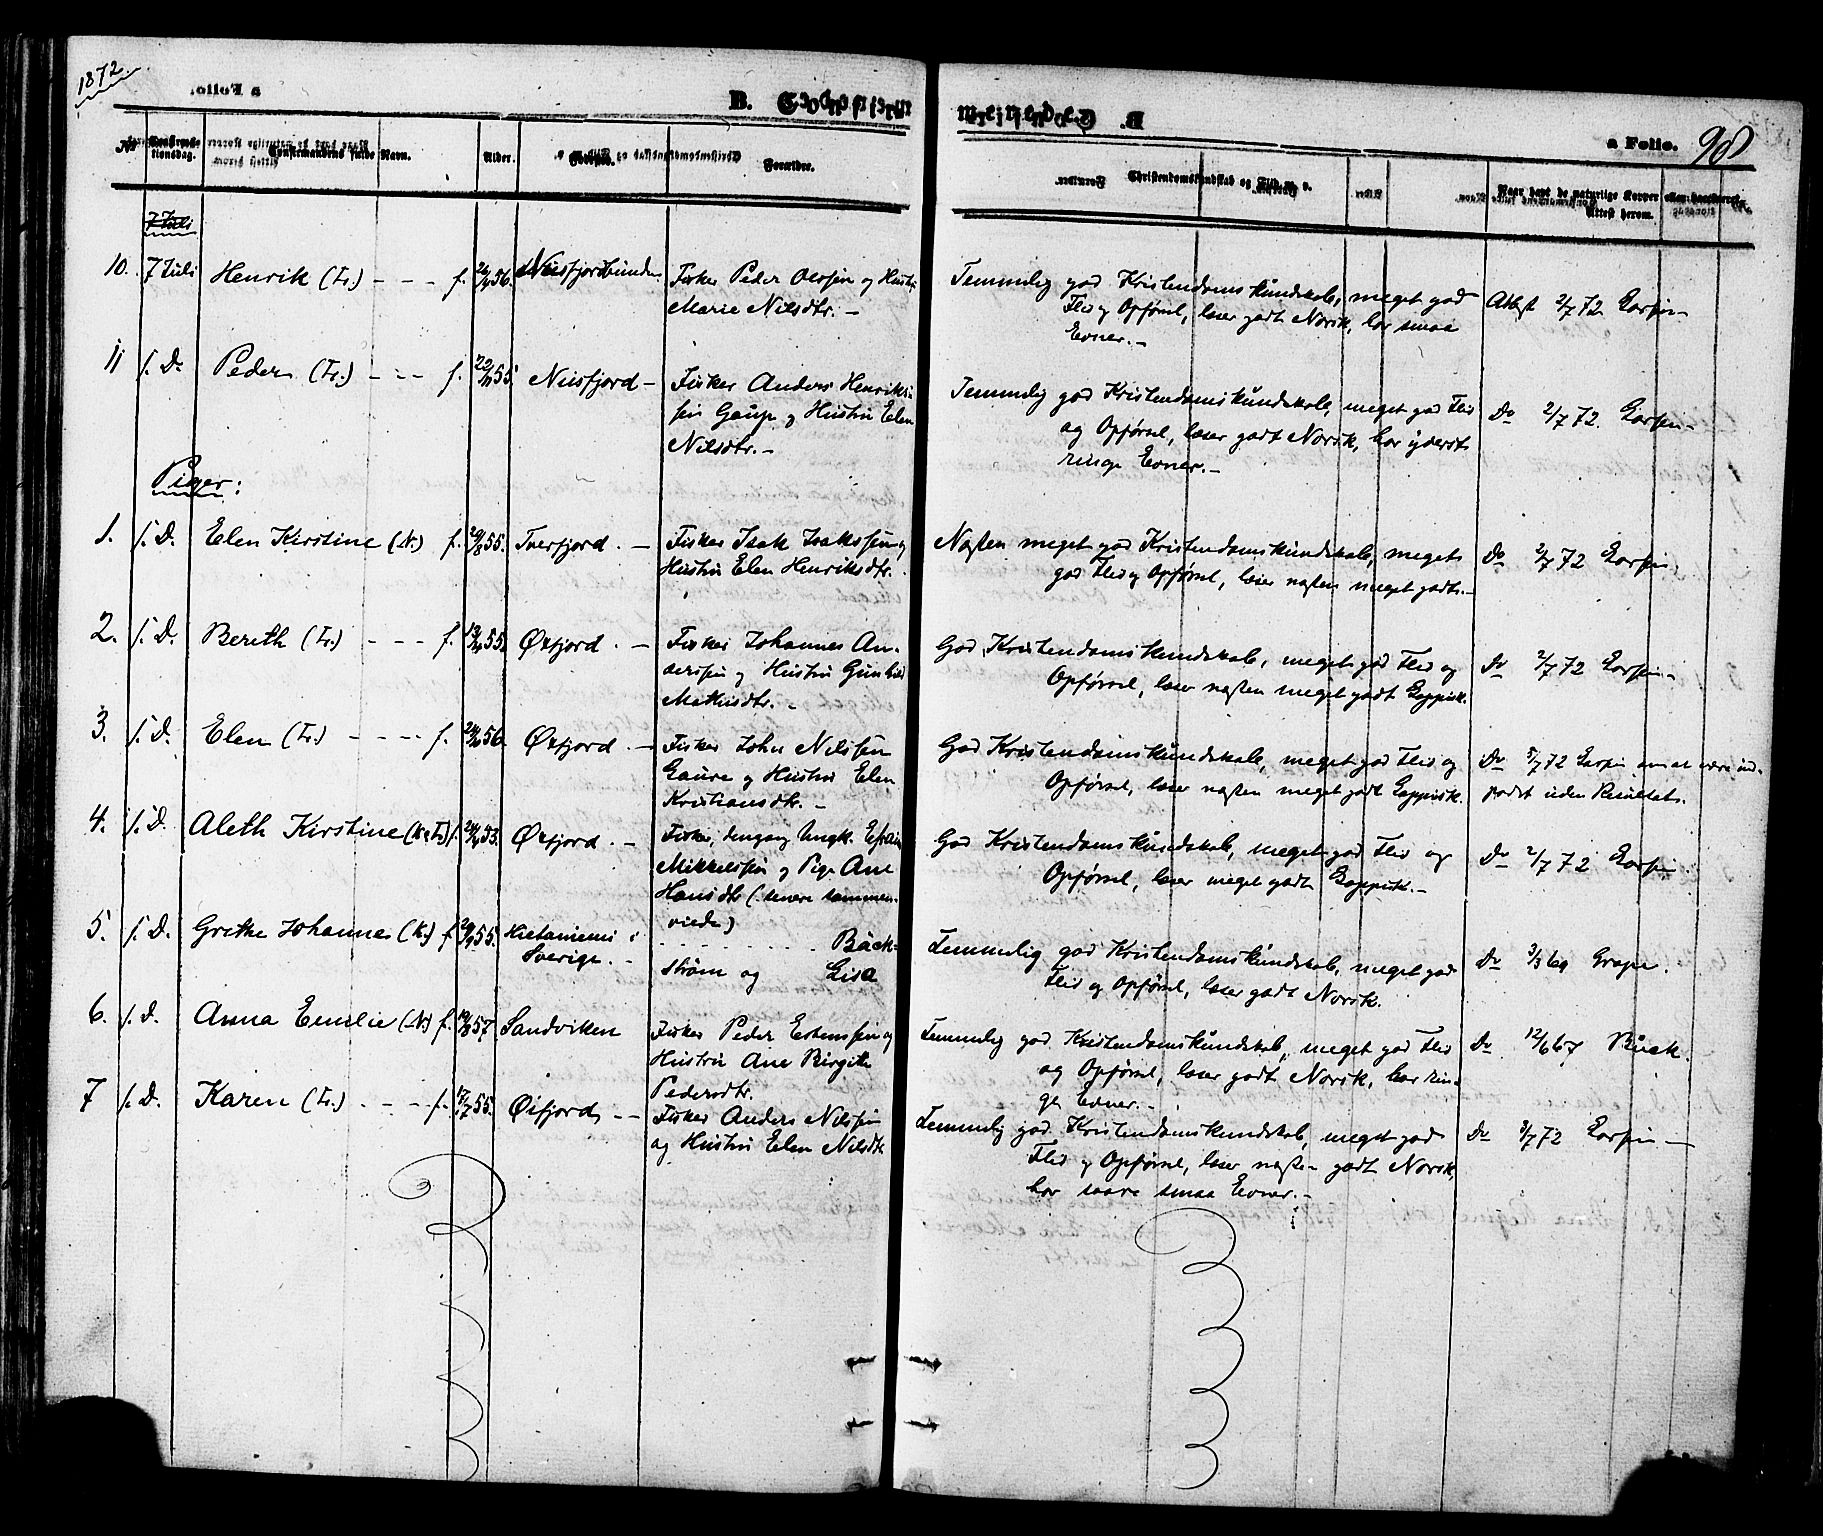 1872.
a Folio. 98
No
Confirmandens fulde Navn.
Alder.
Forældre.
Christendomskundskab og Flid m. v.
Naar havt de naturlige Kopper
Attest herom.
7 Juli
10. 7 Juli Henrik (Lr.) - - - f. 56. Neisfjordbunden Fisker Peder Olssen og Hustru
Marie Nilsdtr. -
Temmelig god Kristendomskundskab, meget god
Flid og Opførsel, læser godt Norsk, har smaa
Evner. -
Attest 2/7 72
11 s. D. Peder (Lr.) - - - f. 22/11 55. Neisfjord - Fisker Anders Henriks-
sen Gaup og Hustru Elen
Nilsdtr. -
Temmelig god Kristendomskundskab, meget god Flid
og Opførsel, læser godt Norsk, har yderst
ringe Evner. -
Do 2/7 72.
Piger:
1. s. D. Elen Kirstine (N.) f. 55. Tverfjord. - Fisker Isak Isakssen og
Hustru Elen Henriksdtr.
Næsten meget god Kristendomskundskab, meget
god Flid og Opførsel, læser næsten meget godt. -
Do 2/7 72
2. s. D. Bereth (Lr.) - - - f. 55. Øxfjord. - Fisker Johannes An-
derssen og Hustru Gunhild
Mathisdtr. -
God Kristendomskundskab, meget god Flid og
Opførsel, læser næsten meget godt Lappisk.
Do 2/7 72
3. s. D. Elen (Lr.) - - - - f. 56. Øxfjord. - Fisker John Nilssen
Gaure og Hustru Elen
Kristiansdtr. -
God Kristendomskundskab, meget god Flid og
Opførsel, læser næsten meget godt Lappisk.
Do 5/7 72 om at være ind-
podet uden Resultat.
4. s. D. Aleth Kirstine f. 53. Øxfjord. - Fisker, dengang Ungk. Efraim
Mikkelssen og Pige Ane
Hansdtr (senere sammen-
viede)
God Kristendomskundskab, meget god Flid og
Opførsel, læser meget godt Lappisk. -
Do 2/7 72
5. s. D. Grethe Johanne (K.) f. 55. Hietaniemi i
Sverige. -
Bäck-
strøm og Lisa
Temmelig god Kristendomskundskab, meget god
Flid og Opførsel, læser godt Norsk.
Do 3/3 69 Grape.
6. s. D. Anna Emilie (N.) f. 57. Sandviken Fisker Peder Estenssen og
Hustru Ane Birgitte
Pedersdtr.
Temmelig god Kristendomskundskab, meget god Flid
og Opførsel, læser godt Norsk, har rin-
ge Evner. -
Do 12/6 67 Buck.
7 s. D. Karen (Lr.) - - - f. 17/7 55. Øxfjord - - Fisker Anders Nilssen
og Hustru Elen Nilsdtr
Temmelig god Kristendomskundskab, meget god
Flid og Opførsel, læser næsten godt Norsk,
har saare smaa Evner. -
Do 3/7 72